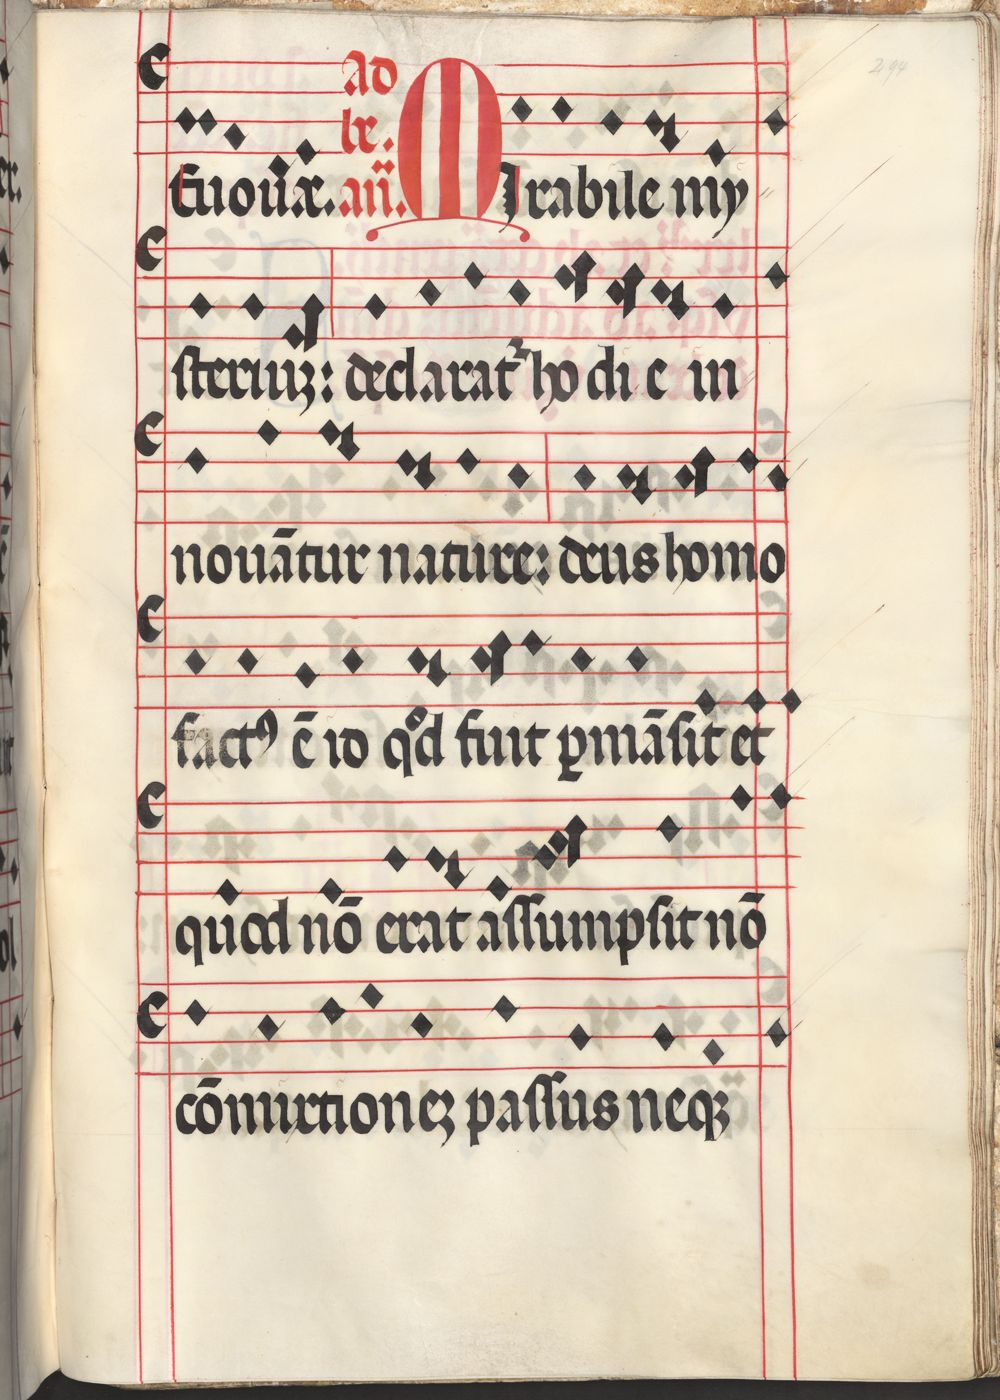 294
Ad
be.
Euouae. añ. MIrabile my
steriuʒ: declaratᷣ ho di e in
nouātur nature: deus homo
factꝰ ē id qͦd fuit ꝑmāsit et
quod nō erat assumpsit nō
cōmixtioneʒ passus neqʒ